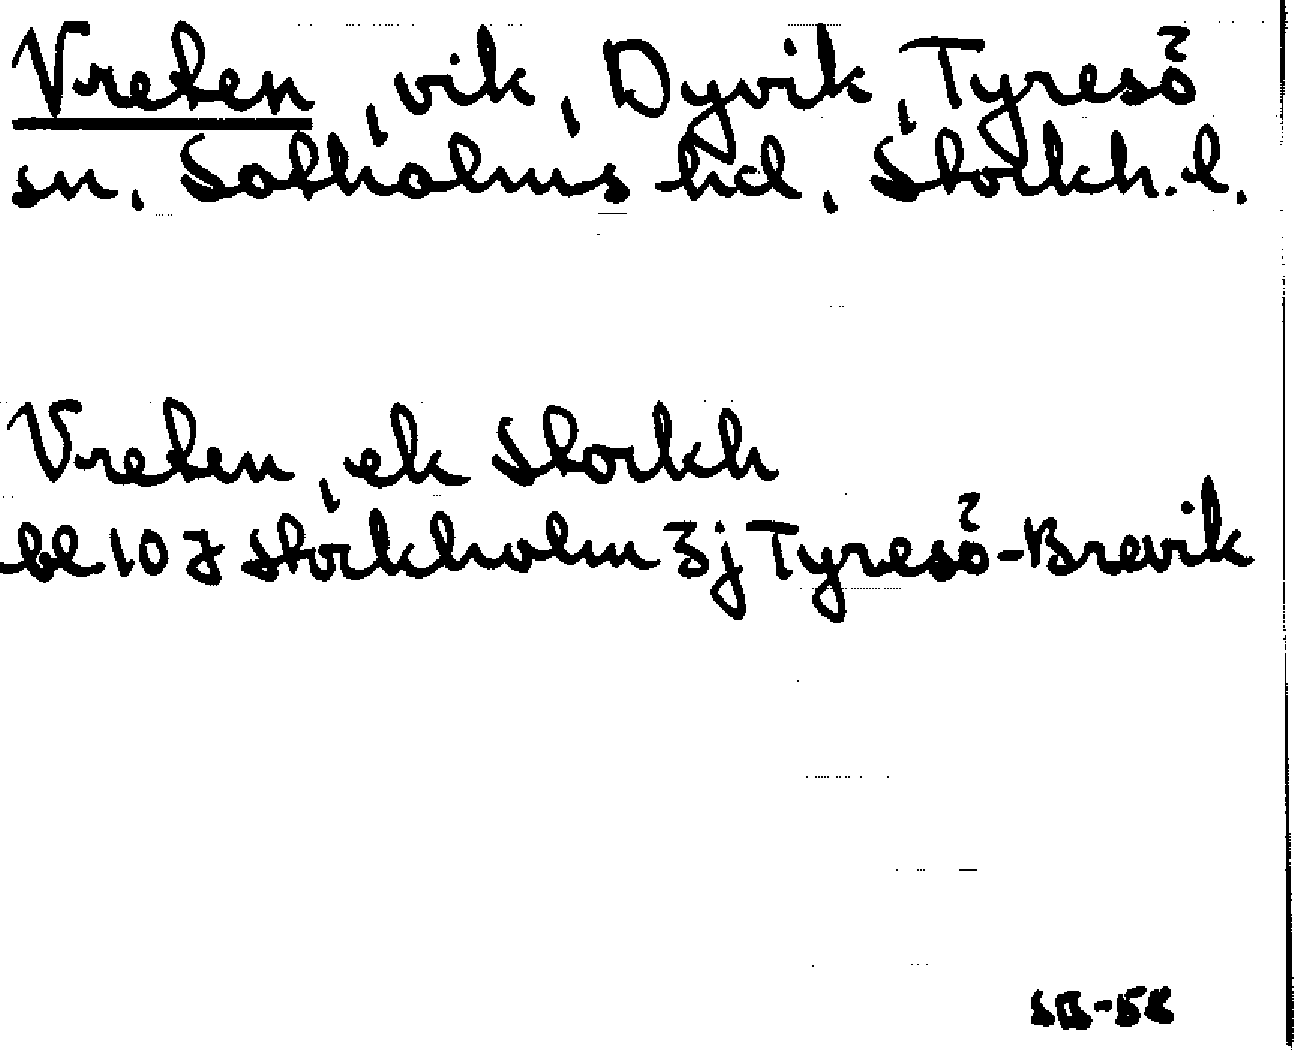 Vreten, vik, Dyvik, Tyresö
sn. Sotholms hd. Stockh. l.
Vreten, ek Stockh
bl 10 J Stockholm 3j Tyresö-Brevik
SB-58